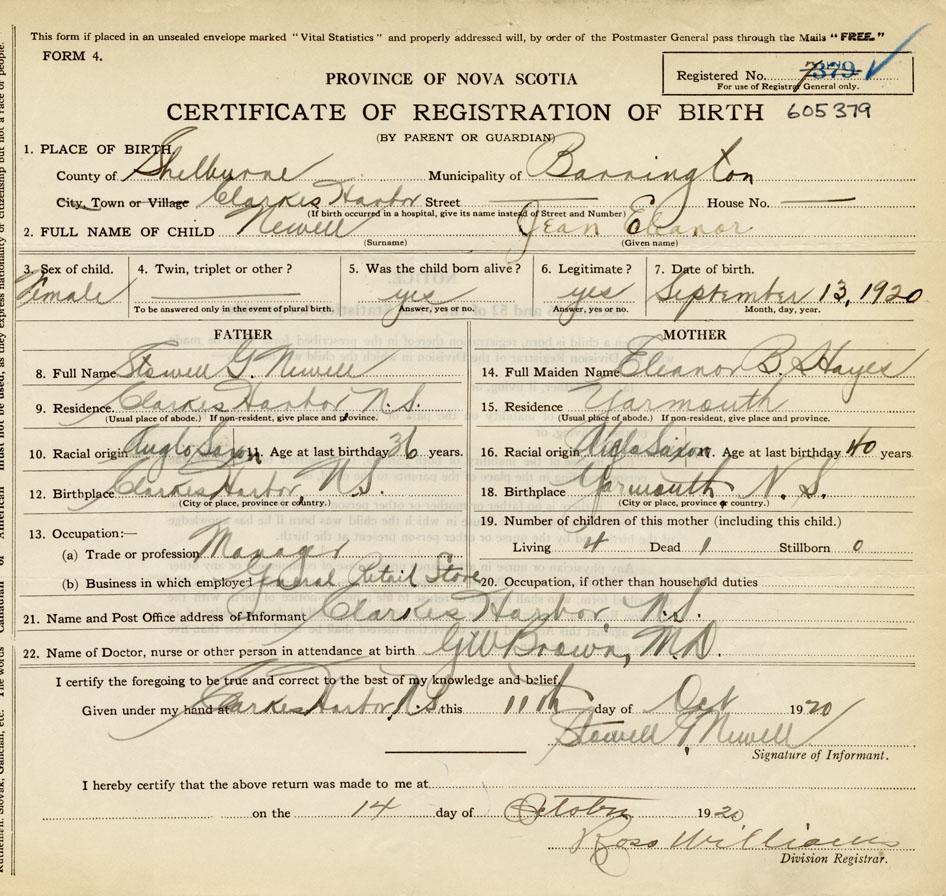 This form if placed in an unsealed envelope marked "Vital Statistics" and properly addressed will, by order of the Postmaster General pass through the Mails "FREE."
FORM 4.
PROVINCE OF NOVA SCOTIA
Registered No. 7379
For use of Registrar General only.
CERTIFICATE OF REGISTRATION OF BIRTH 605379
(BY PARENT OR GUARDIAN)
1. PLACE OF BIRTH.
County of Shelburne Municipality of Barrington
City, Town or Village Clarkes Harbor Street House No.
(If birth occurred in a hospital, give its name instead of Street and Number)
2. FULL NAME OF CHILD Newell Jean Eleanor
(Surname) (Given name)
3. Sex of child. 4. Twin, triplet or other? 5. Was the child born alive? 6. Legitimate? 7. Date of birth.
Female yes yes September 13, 1920
To be answered only in the event of plural birth. Answer, yes or no. Answer, yes or no. Month, day, year.
FATHER MOTHER
8. Full Name Stowell G. Newell 14. Full Maiden Name Eleanor B. Hayes
9. Residence Clarkes Harbor N.S. 15. Residence Yarmouth
(Usual place of abode.) If non-resident, give place and province. (Usual place of abode.) If non-resident, give place and province.
10. Racial origin Anglo Saxon 11. Age at last birthday 36 years. 16. Racial origin Anglo Saxon Age at last birthday 40 years
12. Birthplace Clarkes Harbor, N.S. 18. Birthplace Yarmouth N.S.
(City or place, province or country.) (City or place, province or country.)
13. Occupation:— 19. Number of children of this mother (including this child.)
(a) Trade or profession Manager Living 4 Dead 1 Stillborn 0
(b) Business in which employed General Retail Store 20. Occupation, if other than household duties
21. Name and Post Office address of Informant Clarkes Harbor N.S.
22. Name of Doctor, nurse or other person in attendance at birth GW Brown, M.D.
I certify the foregoing to be true and correct to the best of my knowledge and belief.
Given under my hand at Clarkes Harbor N.S. this 11th day of Oct 1920
Stowell G Newell
Signature of Informant.
I hereby certify that the above return was made to me at
on the 14 day of October 1920
Ross Williams
Division Registrar.